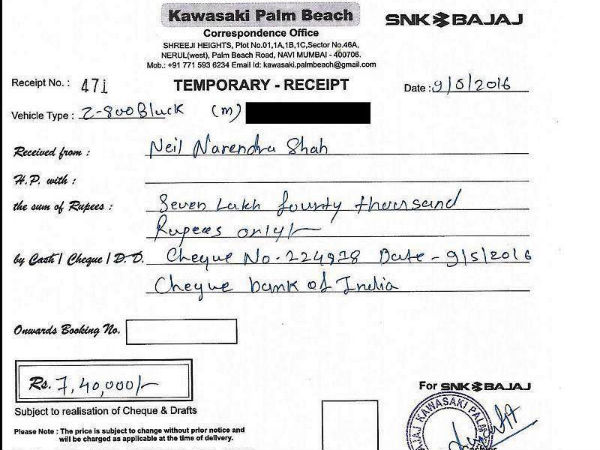 Kawasaki Palm Beach
SNK BAJAJ
Correspondence Office
SHREEJI HEIGHTS, Plot No.01,1A,1B,1C,Sector No.46A,
NERUL(west), Palm Beach Road, NAVI MUMBAI - 400706.
Mob.: +91 771 593 6234 Email Id: kawasaki.palmbeach@gmail.com
Receipt No. : 471
TEMPORARY - RECEIPT
Date : 9/5/2016
Vehicle Type : Z-800 Black (m)
Received from : Neil Narendra Shah
H.P. with :
the sum of Rupees : Seven Lakh fourty thousand
Rupees only/-
by Cash / Cheque / D.D. Cheque No. 224918 Date - 9/5/2016
Cheque bank of India
Onwards Booking No.
Rs. 7,40,000/-
For SNK BAJAJ
Subject to realisation of Cheque & Drafts
Please Note : The price is subject to change without prior notice and
will be charged as applicable at the time of delivery.
BAJAJ KAWASAKI PALM